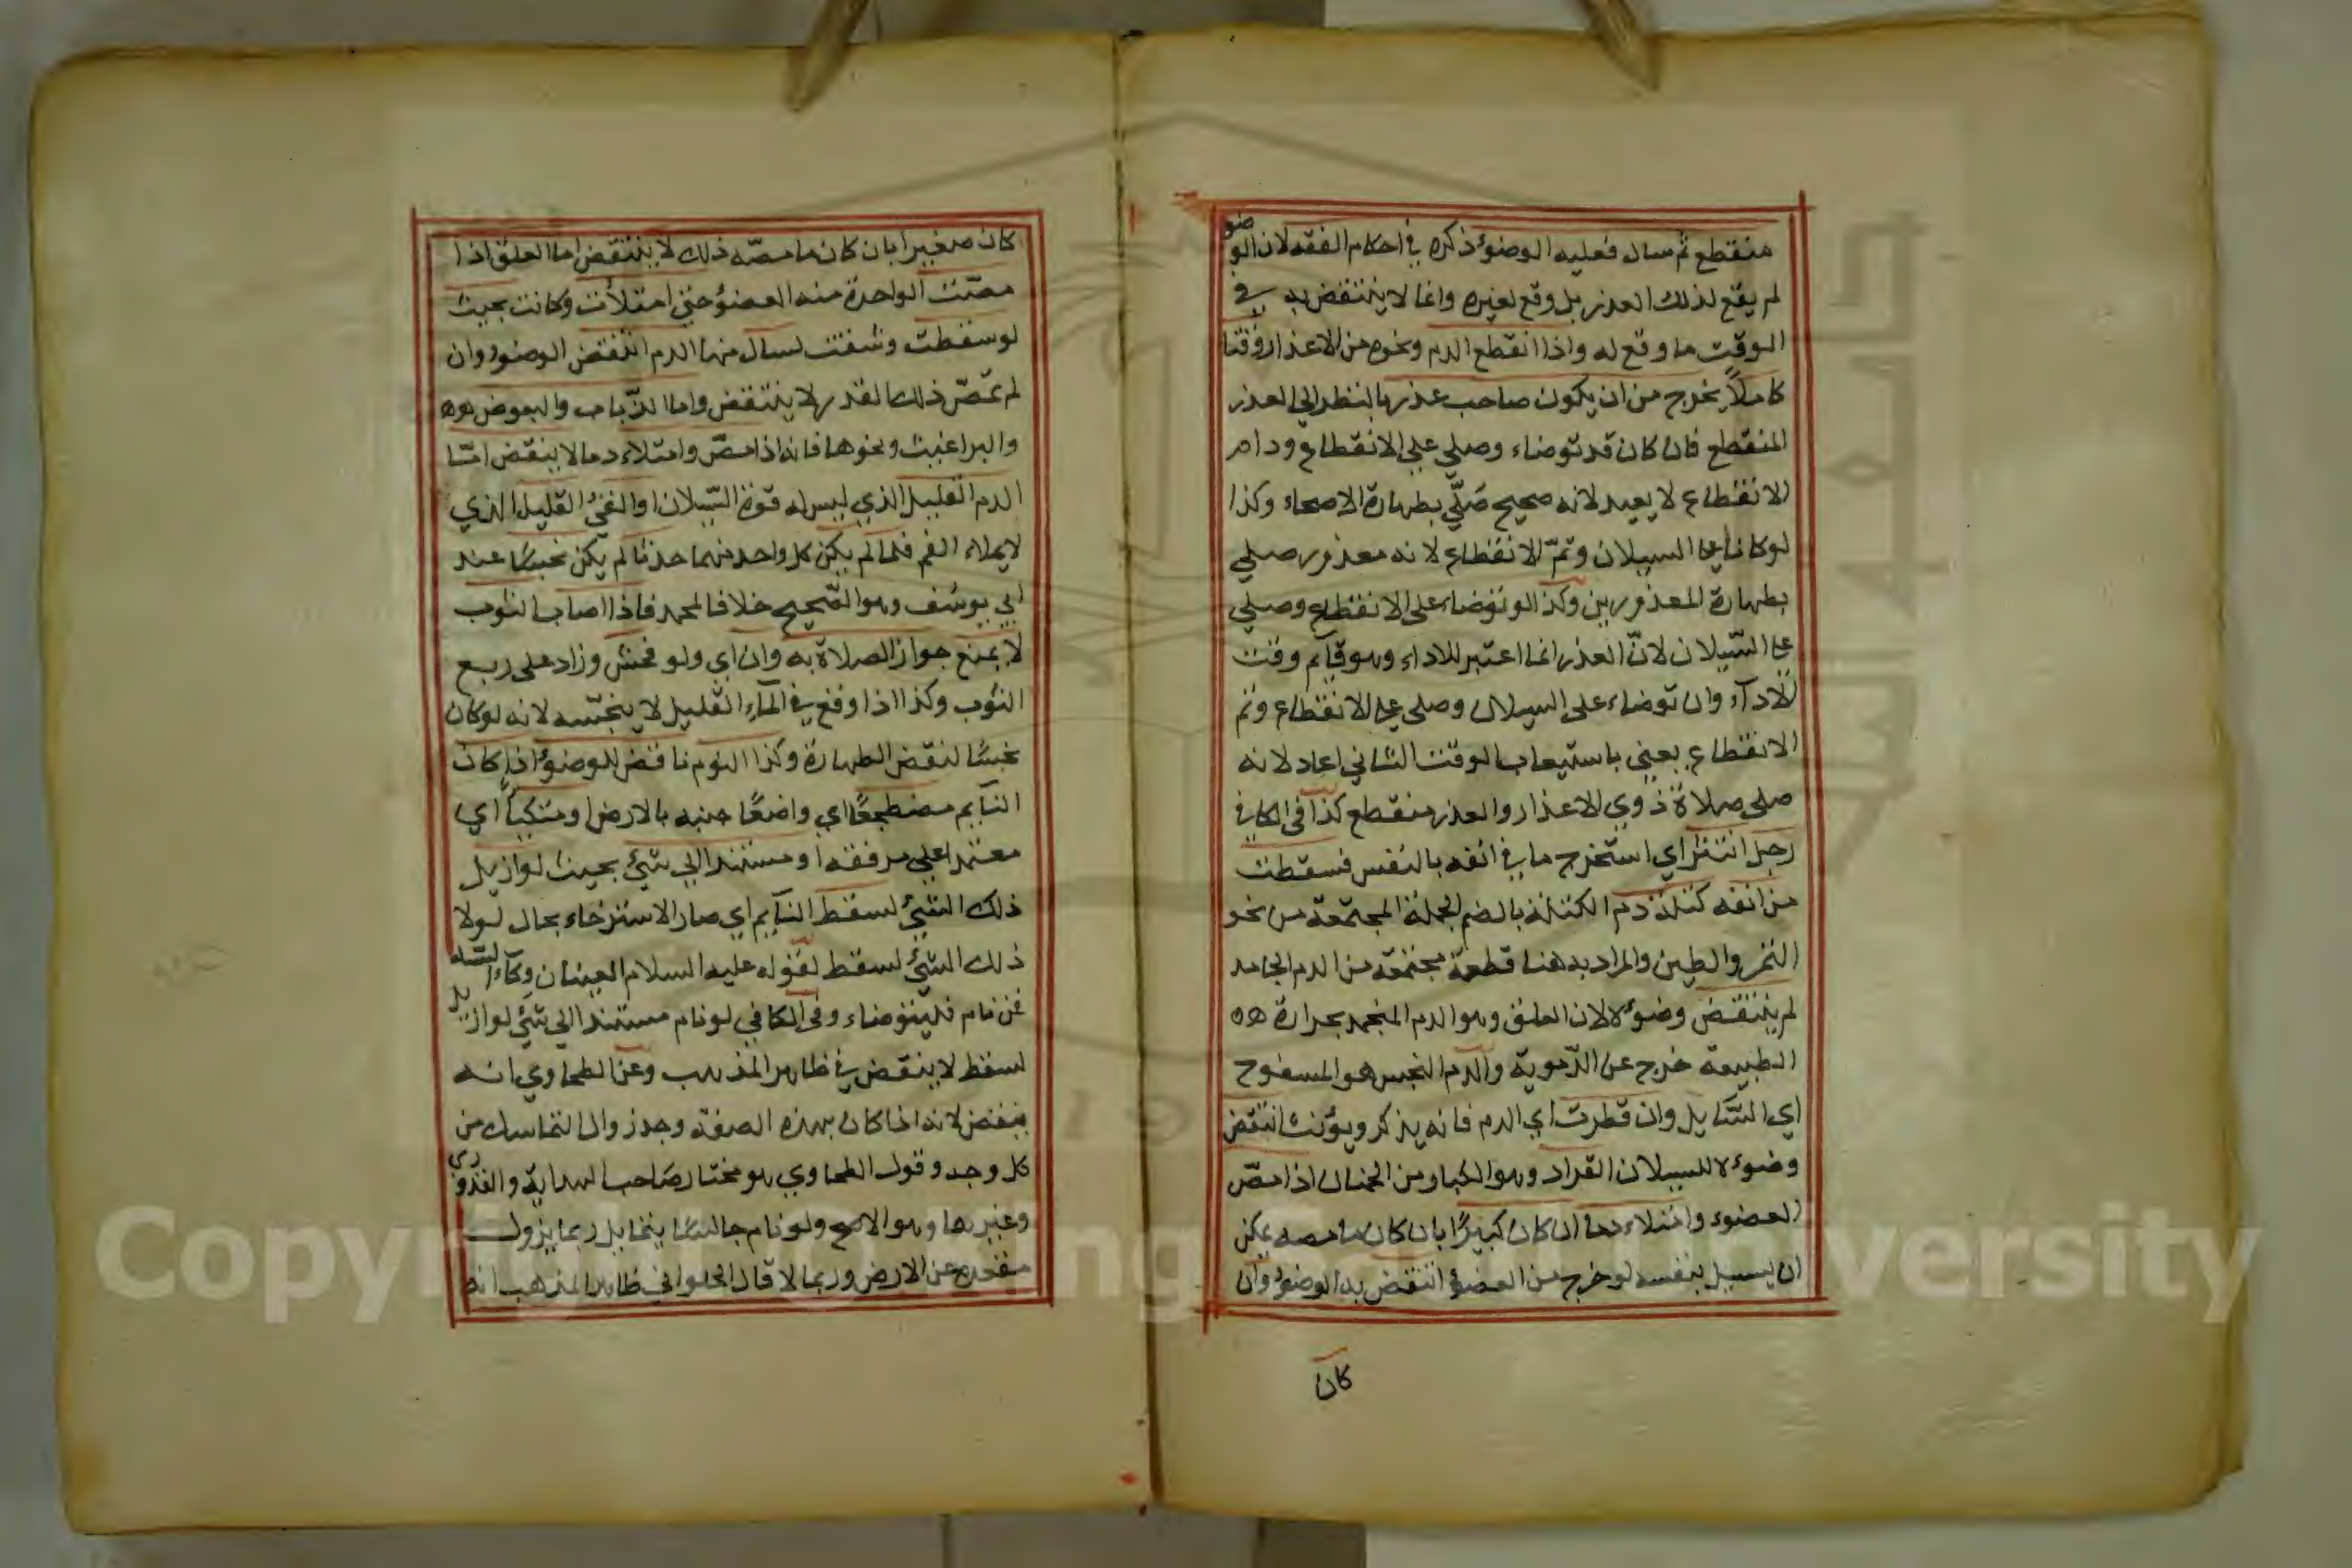 منقطع ثم سال فعليه الوضوء ذكره في احكام الفقه لان الوضو
لم يقع لذلك العذر بل وقع لغيره وانما لا ينتقض به في
الوقت ما وقع له واذا انقطع الدم ونحوه من الاعذار وقتا
كاملاً يخرج من ان يكون صاحب عذر بالنظر الى العذر
المنقطع فان كان قد توضاء وصلى على الانقطاع ودام
الانقطاع لا يعيد لانه صحيح صَلّى بطهارة الاصحاء وكذا
لو كانا على السيلان وتمّ الانقطاع لانه معذور صلى
بطهارة المعذورين وكذا لو توضاء على الانقطاع وصلى
على السّيلان لانّ العذر انما اعتبر للاداء وهو قآيم وقت
الادآء وان توضاء على السيلان وصلى على الانقطاع وتم
الانقطاع يعني باستيعاب الوقت الثاني اعاد لانه
صلى صلاة ذوي الاعذار والعذر منقطع كذا في الكافي
رجل انتثر اي استخرج ما في انفه بالنفس فسقطت
من انفه كتلة دم الكتلة بالضم الجملة المجتمعة من نحو
التمر والطين والمراد به هنا قطعة مجتمعة من الدم الجامد
لم ينتقض وضوءه لان العلق وهو الدم المنجمد بحرارة
الطبيعة خرج عن الدّموية والدم النجس هو المسفوح
اي السّآيل وان قطرت اي الدم فانه يذكر ويؤنث انتقض
وضوءه للسيلان القراد وهو الكبار من الحمنان اذا مصّ
العضوء وامتلاء دما ان كان كبيرًا بان كان ما مصه يمكن
ان يسيل بنفسه لو خرج من العضو انتقض به الوضوء وان
كان
كان صغيرا بان كان ما مصّه ذلك لا ينتقض اما العلق اذا
مصّت الواحدة منه العضوُ حتى امتلأت وكانت بحيث
لو سقطت وشقت لسال منها الدم انتقض الوضوء وان
لم تمصّ ذلك القدر لا ينتقض واما الذّباب والبعوض
والبراغيث ونحوها فانه اذا مصّ وامتلاء دما لا ينقض امّا
الدم القليل الذي ليس له قوة السّيلان او القيُ القليل الذي
لا يملاء الفم فلما لم يكن كل واحد منهما حدثا لم يكن نجسًا عند
ابي يوسُف وهو الصّحيح خلافا لمحمد فاذا اصاب الثوب
لا يمنع جواز الصلاة به وان اي ولو فحش وزاد على ربع
الثوب وكذا اذا وقع في المآء القليل لا ينجّسه لانه لو كان
نجسًا لنقض الطهارة وكذا النوم ناقض للوضوء اذا كان
النآيم مضطجعًا اي واضعًا جنبه بالارض او متكياً اي
معتمدا على مرفقه او مستندا الى شئ بحيث لو ازيل
ذلك الشئ لسقط النآيم اي صار الاسترخاء بحال لولا
ذلك الشئ لسقط لقوله عليه السلام العينان وكآء السّه
فمن نام فليتوضاء وفي الكافي لو نام مستندا الى شئ لو ازيل
لسقط لا ينقض في ظاهر المذهب وعن الطحاوي انه
ينقض لانه اذا كان بهذه الصفة وجد زوال التماسك من
كل وجه وقول الطحاوي هو مختار صَاحب الهداية والقدوري
وغيرها وهو الاصح ولو نام جالسًا يتمايل ربما يزول
مقعده عن الارض وربما لا قال الحلواني ظاهر المذهب انه